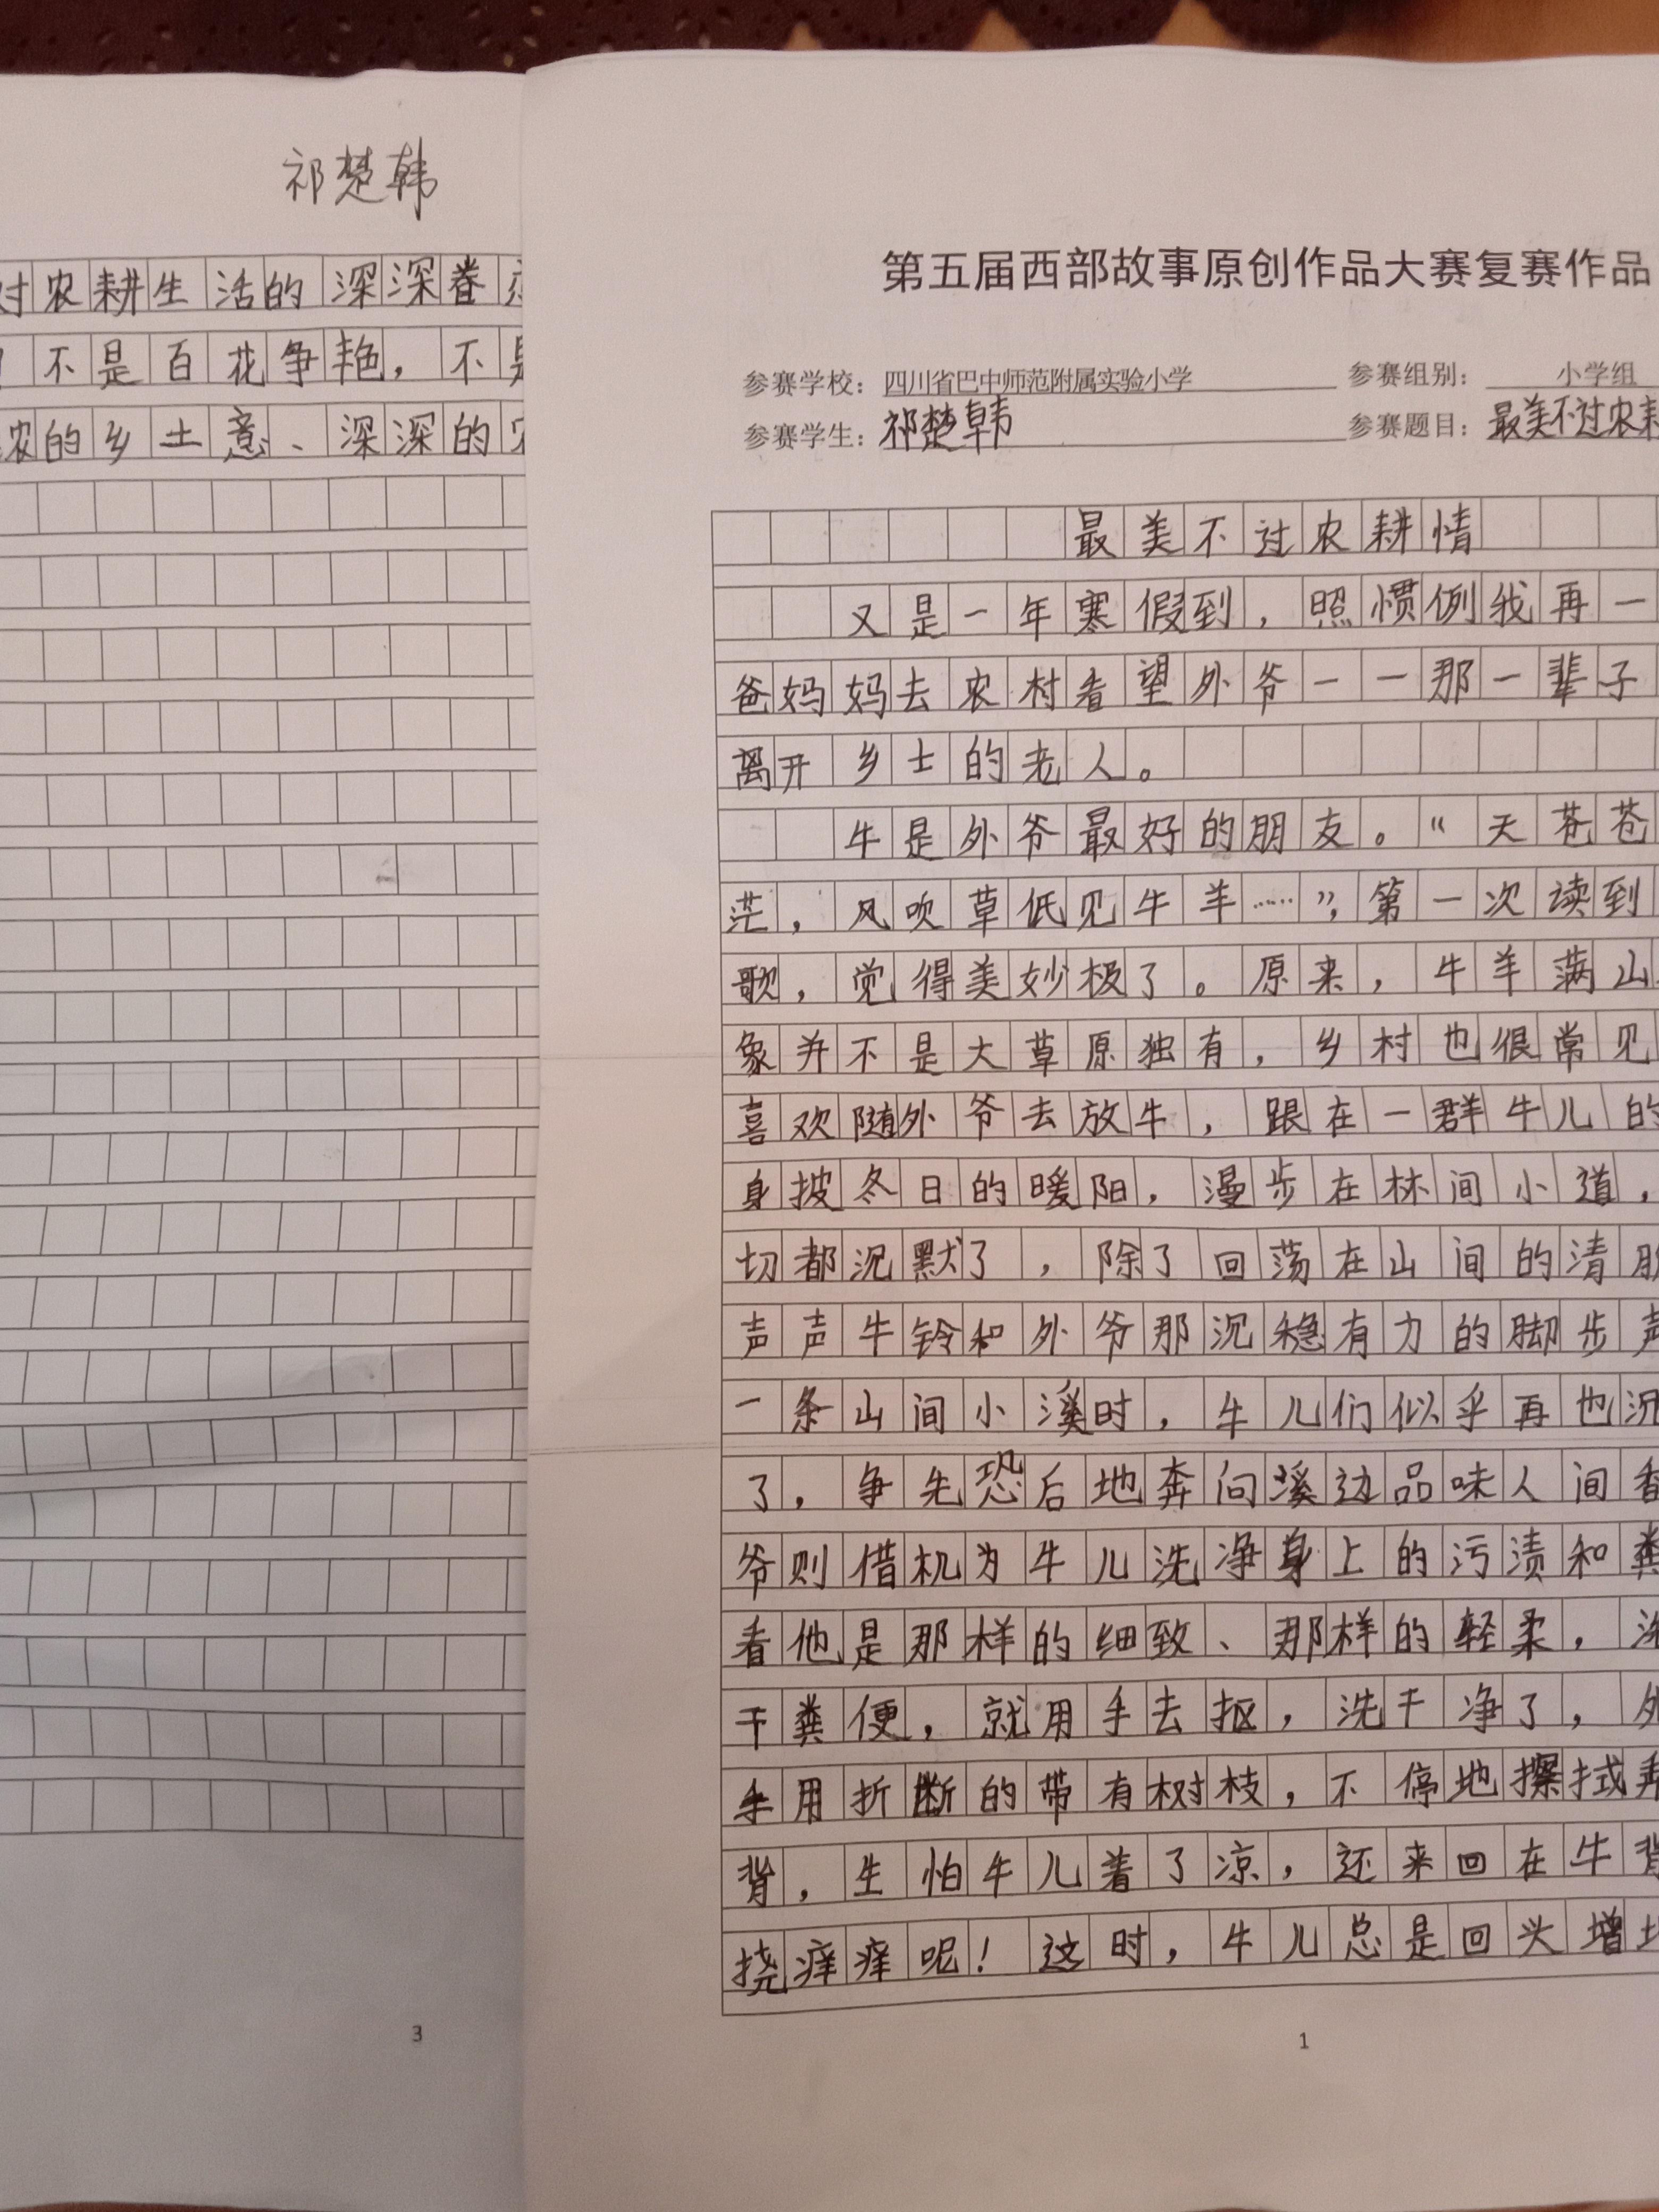 祁楚韩
对农耕生活的深深眷
不是百花争艳，不是
浓的乡土意、深深的
3
第五届西部故事原创作品大赛复赛作品
参赛学校：四川省巴中师范附属实验小学 参赛组别：小学组
参赛学生：祁楚韩 参赛题目：最美不过农耕
最美不过农耕情
又是一年寒假到，照惯例我再一
爸妈妈去农村看望外爷——那一辈子
离开乡土的老人。
牛是外爷最好的朋友。“天苍苍
茫，风吹草低见牛羊……”，第一次读到
歌，觉得美妙极了。原来，牛羊满山
象并不是大草原独有，乡村也很常见
喜欢随外爷去放牛，跟在一群牛儿的
身披冬日的暖阳，漫步在林间小道，
切都沉默了，除了回荡在山间的清脆
声声牛铃和外爷那沉稳有力的脚步声
一条山间小溪时，牛儿们似乎再也沉
了，争先恐后地奔向溪边品味人间香
爷则借机为牛儿洗净身上的污渍和粪
看他是那样的细致、那样的轻柔，洗
干粪便，就用手去抠，洗干净了，外
用折断的带有树枝，不停地擦拭
背，生怕牛儿着了凉，还来回在牛背
挠痒痒呢！这时，牛儿总是回头
1